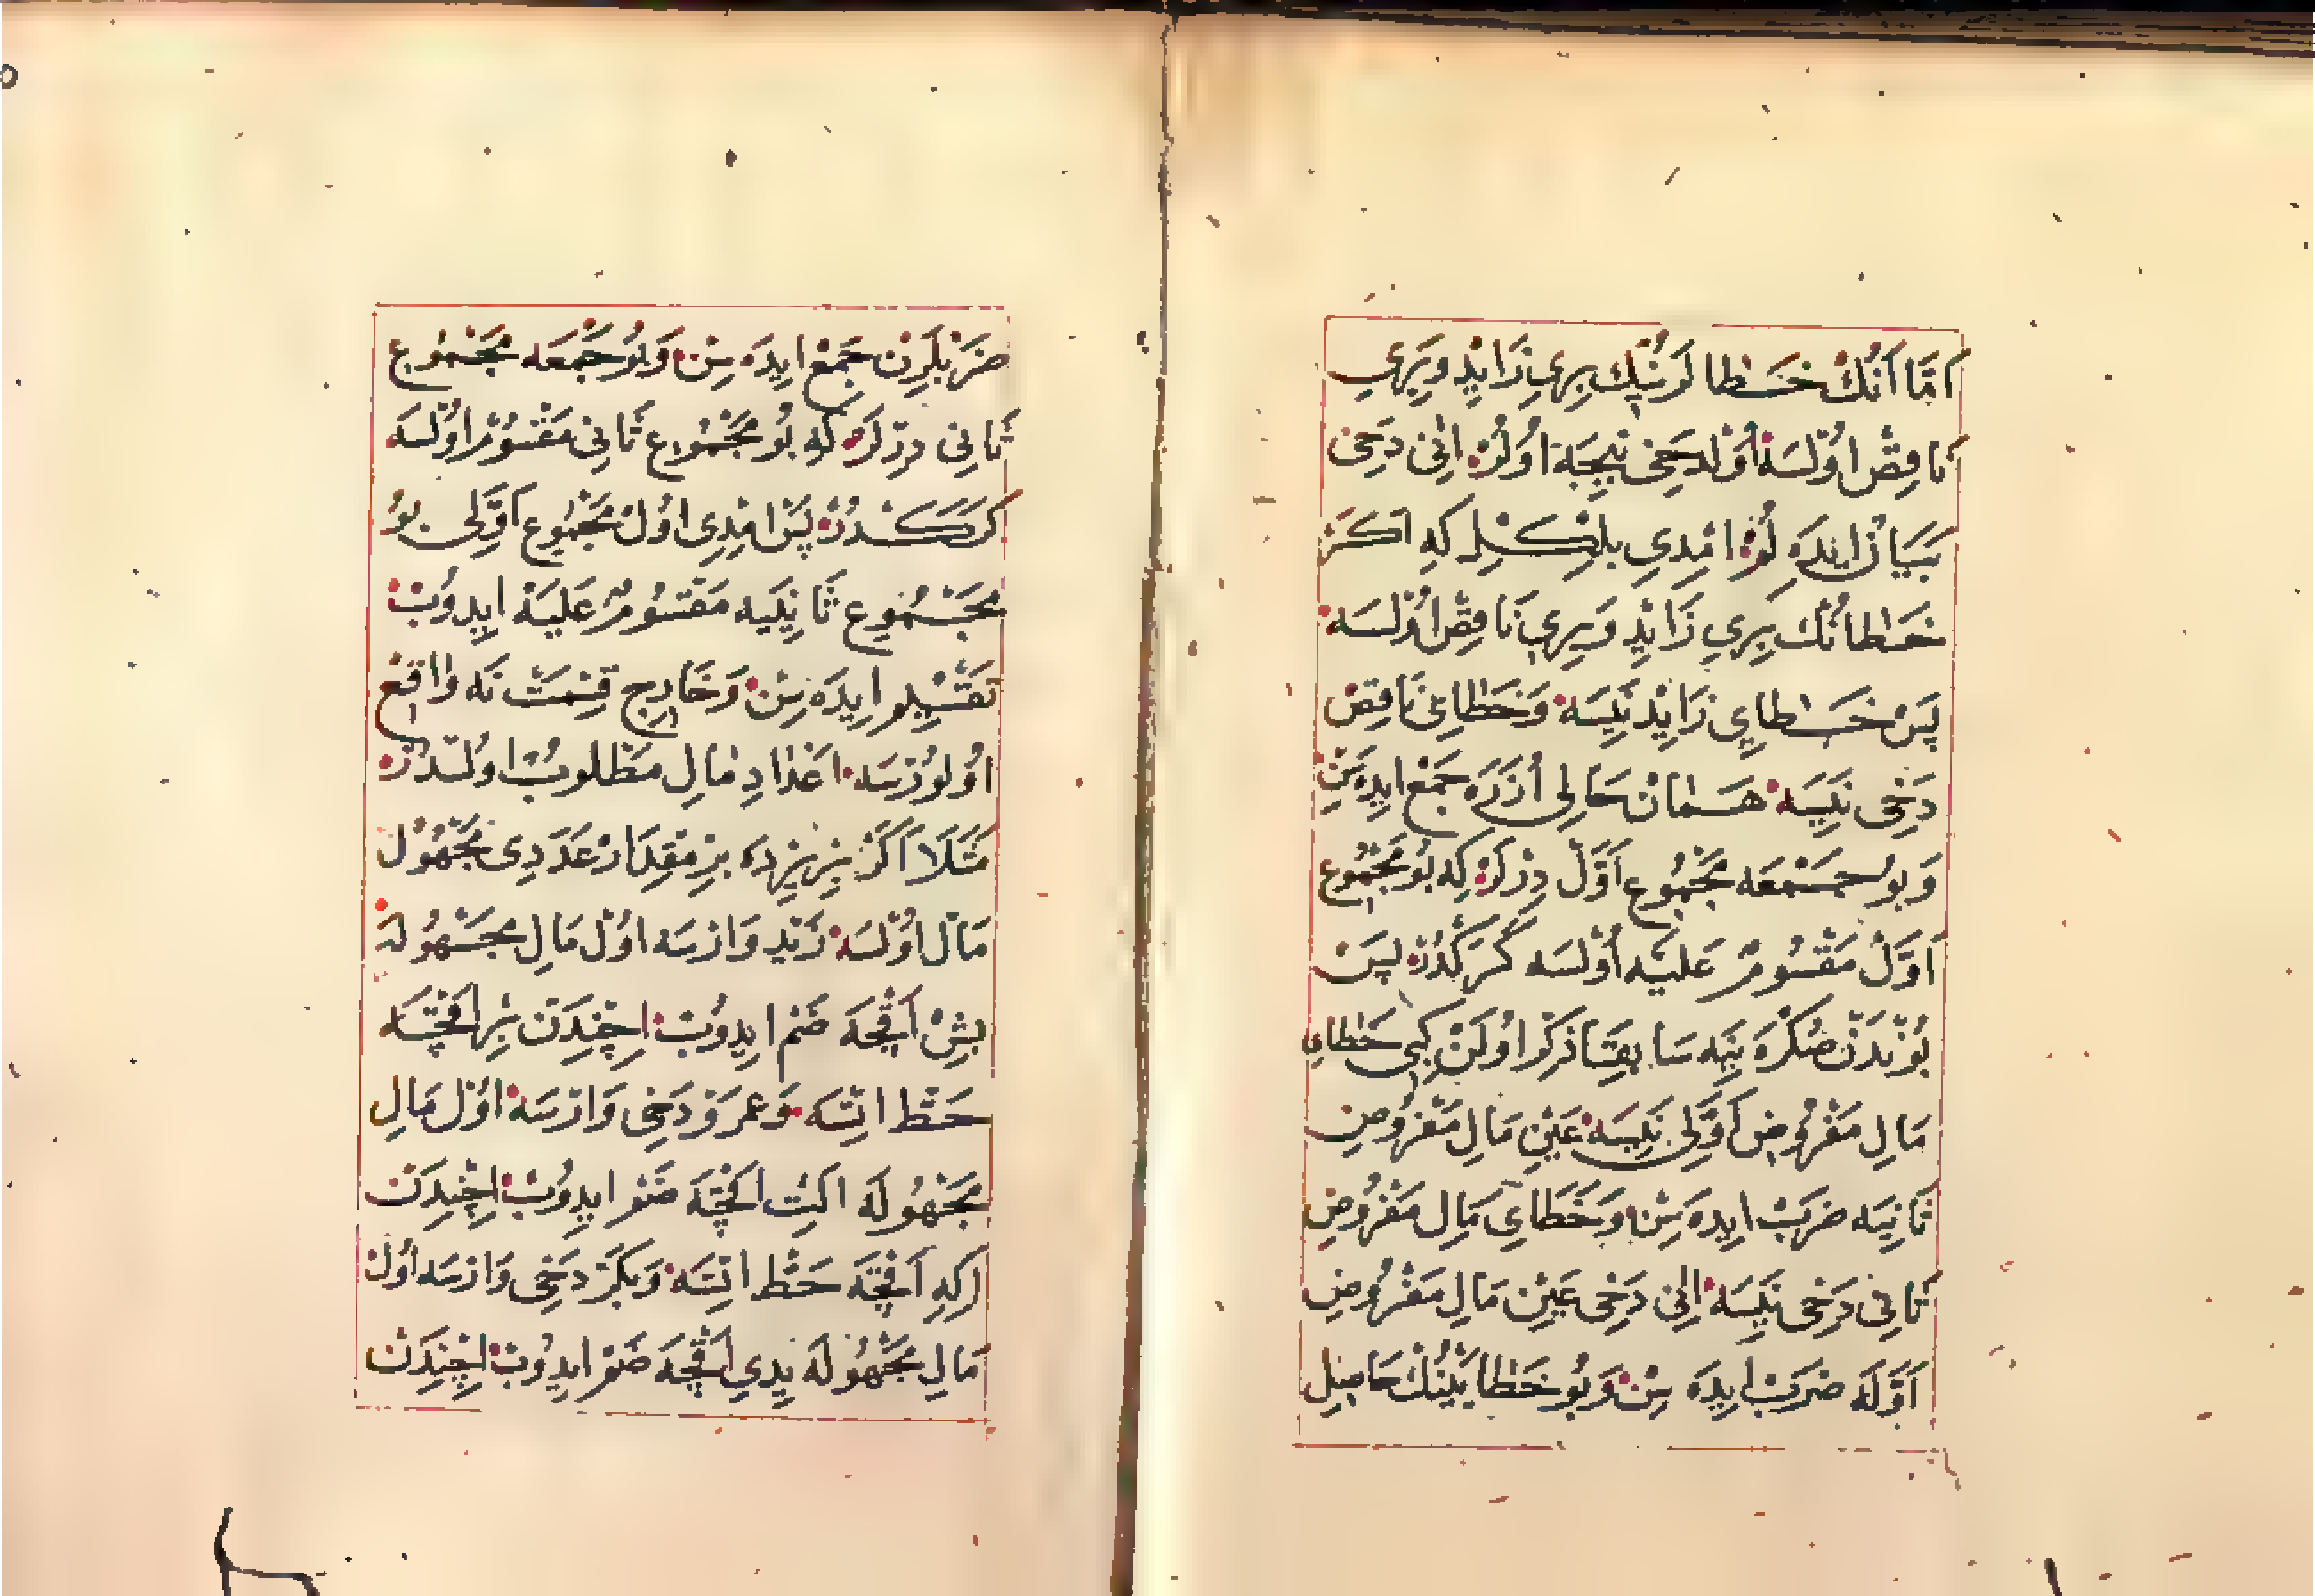 اَمَّا اَنُكْ خَطَالَرُنِكْ بِرِي زَايِدْ وَبِرِي
نَاقِصْ اُولْسَهْ اَوَّلْ دَخِى نِيجَهْ اُولُرْ اَنِى دَخِى
بَيَانْ اِيدَهْ لُمْ اِمْدِي بِلْكِلْ كِهْ اَكَرْ
خَطَانُكْ بِرِي زَايِدْ وَبِرِي نَاقِصْ اُولْسَهْ
پَسْ خَطَايِ زَايِدْ نَيْسَهْ وَخَطَايِ نَاقِصْ
دَخِى نَيْسَهْ هَمَانْ حَالِى اُزَرَهْ جَمْعْ اِيدَهْ سِنْ
وَبُو جَمْعَهْ مَجْمُوعِ اَوَّلْ دِرْلَرْ كِهْ بُو مَجْمُوعِ
اَوَّلْ مَقْسُومٌ عَلَيْهْ اُولْسَهْ كَرَكْدُرْ پَسْ
بُونْدَنْ صُكْرَهْ يِنَهْ سَابِقَا ذِكْرْ اُولَنْ كِبِى خَطَايِ
مَالِ مَفْرُوضِ اَوَّلِى نَيْسَهْ عَيْنِ مَالِ مَفْرُوضِ
ثَانِيَهْ ضَرَبْ اِيدَهْ سِنْ وَخَطَايِ مَالِ مَفْرُوضِ
ثَانِى دَخِى نَيْسَهْ اَنِى دَخِى عَيْنِ مَالِ مَفْرُوضِ
اَوَّلَهْ ضَرَبْ اِيدَهْ سِنْ وَبُو خَطَايَيْنُكْ حَاصِلِ
ضَرْبْلَرِنْ جَمْعْ اِيدَهْ سِنْ وَبُو جَمْعَهْ مَجْمُوعِ
ثَانِى دِرْلَرْ كِهْ بُو مَجْمُوعِ ثَانِى مَقْسُومْ اُولْسَهْ
كَرَكْدُرْ پَسْ اِمْدِى اُولْ مَجْمُوعِ اَوَّلِى بُو
مَجْمُوعِ ثَانِيَيهْ مَقْسُومٌ عَلَيْهْ اِيدُوبْ
تَقْسِيلْ اِيدَهْ سِنْ وَخَارِجِ قِسْمَتْ نَهْ وَاقِعْ
اُولُورْسَهْ اَعْدَادِ مَالِ مَطْلُوبْ اُولْدُرْ
مَثَلَا اَكَرْ بِزِيزْدَهْ بِرْ مِقْدَارْ عَدَدِى مَجْهُولْ
مَالْ اُولْسَهْ زَيْدْ وَارْسَهْ اُولْ مَالِ مَجْهُولَهْ
بِشْ اَقْچَهْ ضَمْ اِيدُوبْ اِچِنْدَنْ بِرْ اَقْچَهْ
حَطْ اِتْسَهْ وَعَمْرَوْ دَخِى وَارْسَهْ اُولْ مَالِ
مَجْهُولَهْ اَلْتِ اَقْچَهْ ضَمْ اِيدُوبْ اِچِنْدَنْ
اِكِهْ اَقْچَهْ حَطْ اِتْسَهْ وَبَكَرْ دَخِى وَارْسَهْ اُولْ
مَالِ مَجْهُولَهْ يِدِى اَقْچَهْ ضَمْ اِيدُوبْ اِچِنْدَنْ